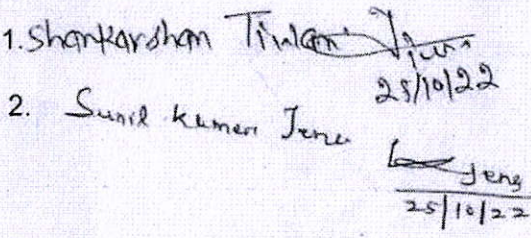 1. Shankarshan Tiwari
25/10/22
2. Sunil Kumar Jena
Jena
25/10/22